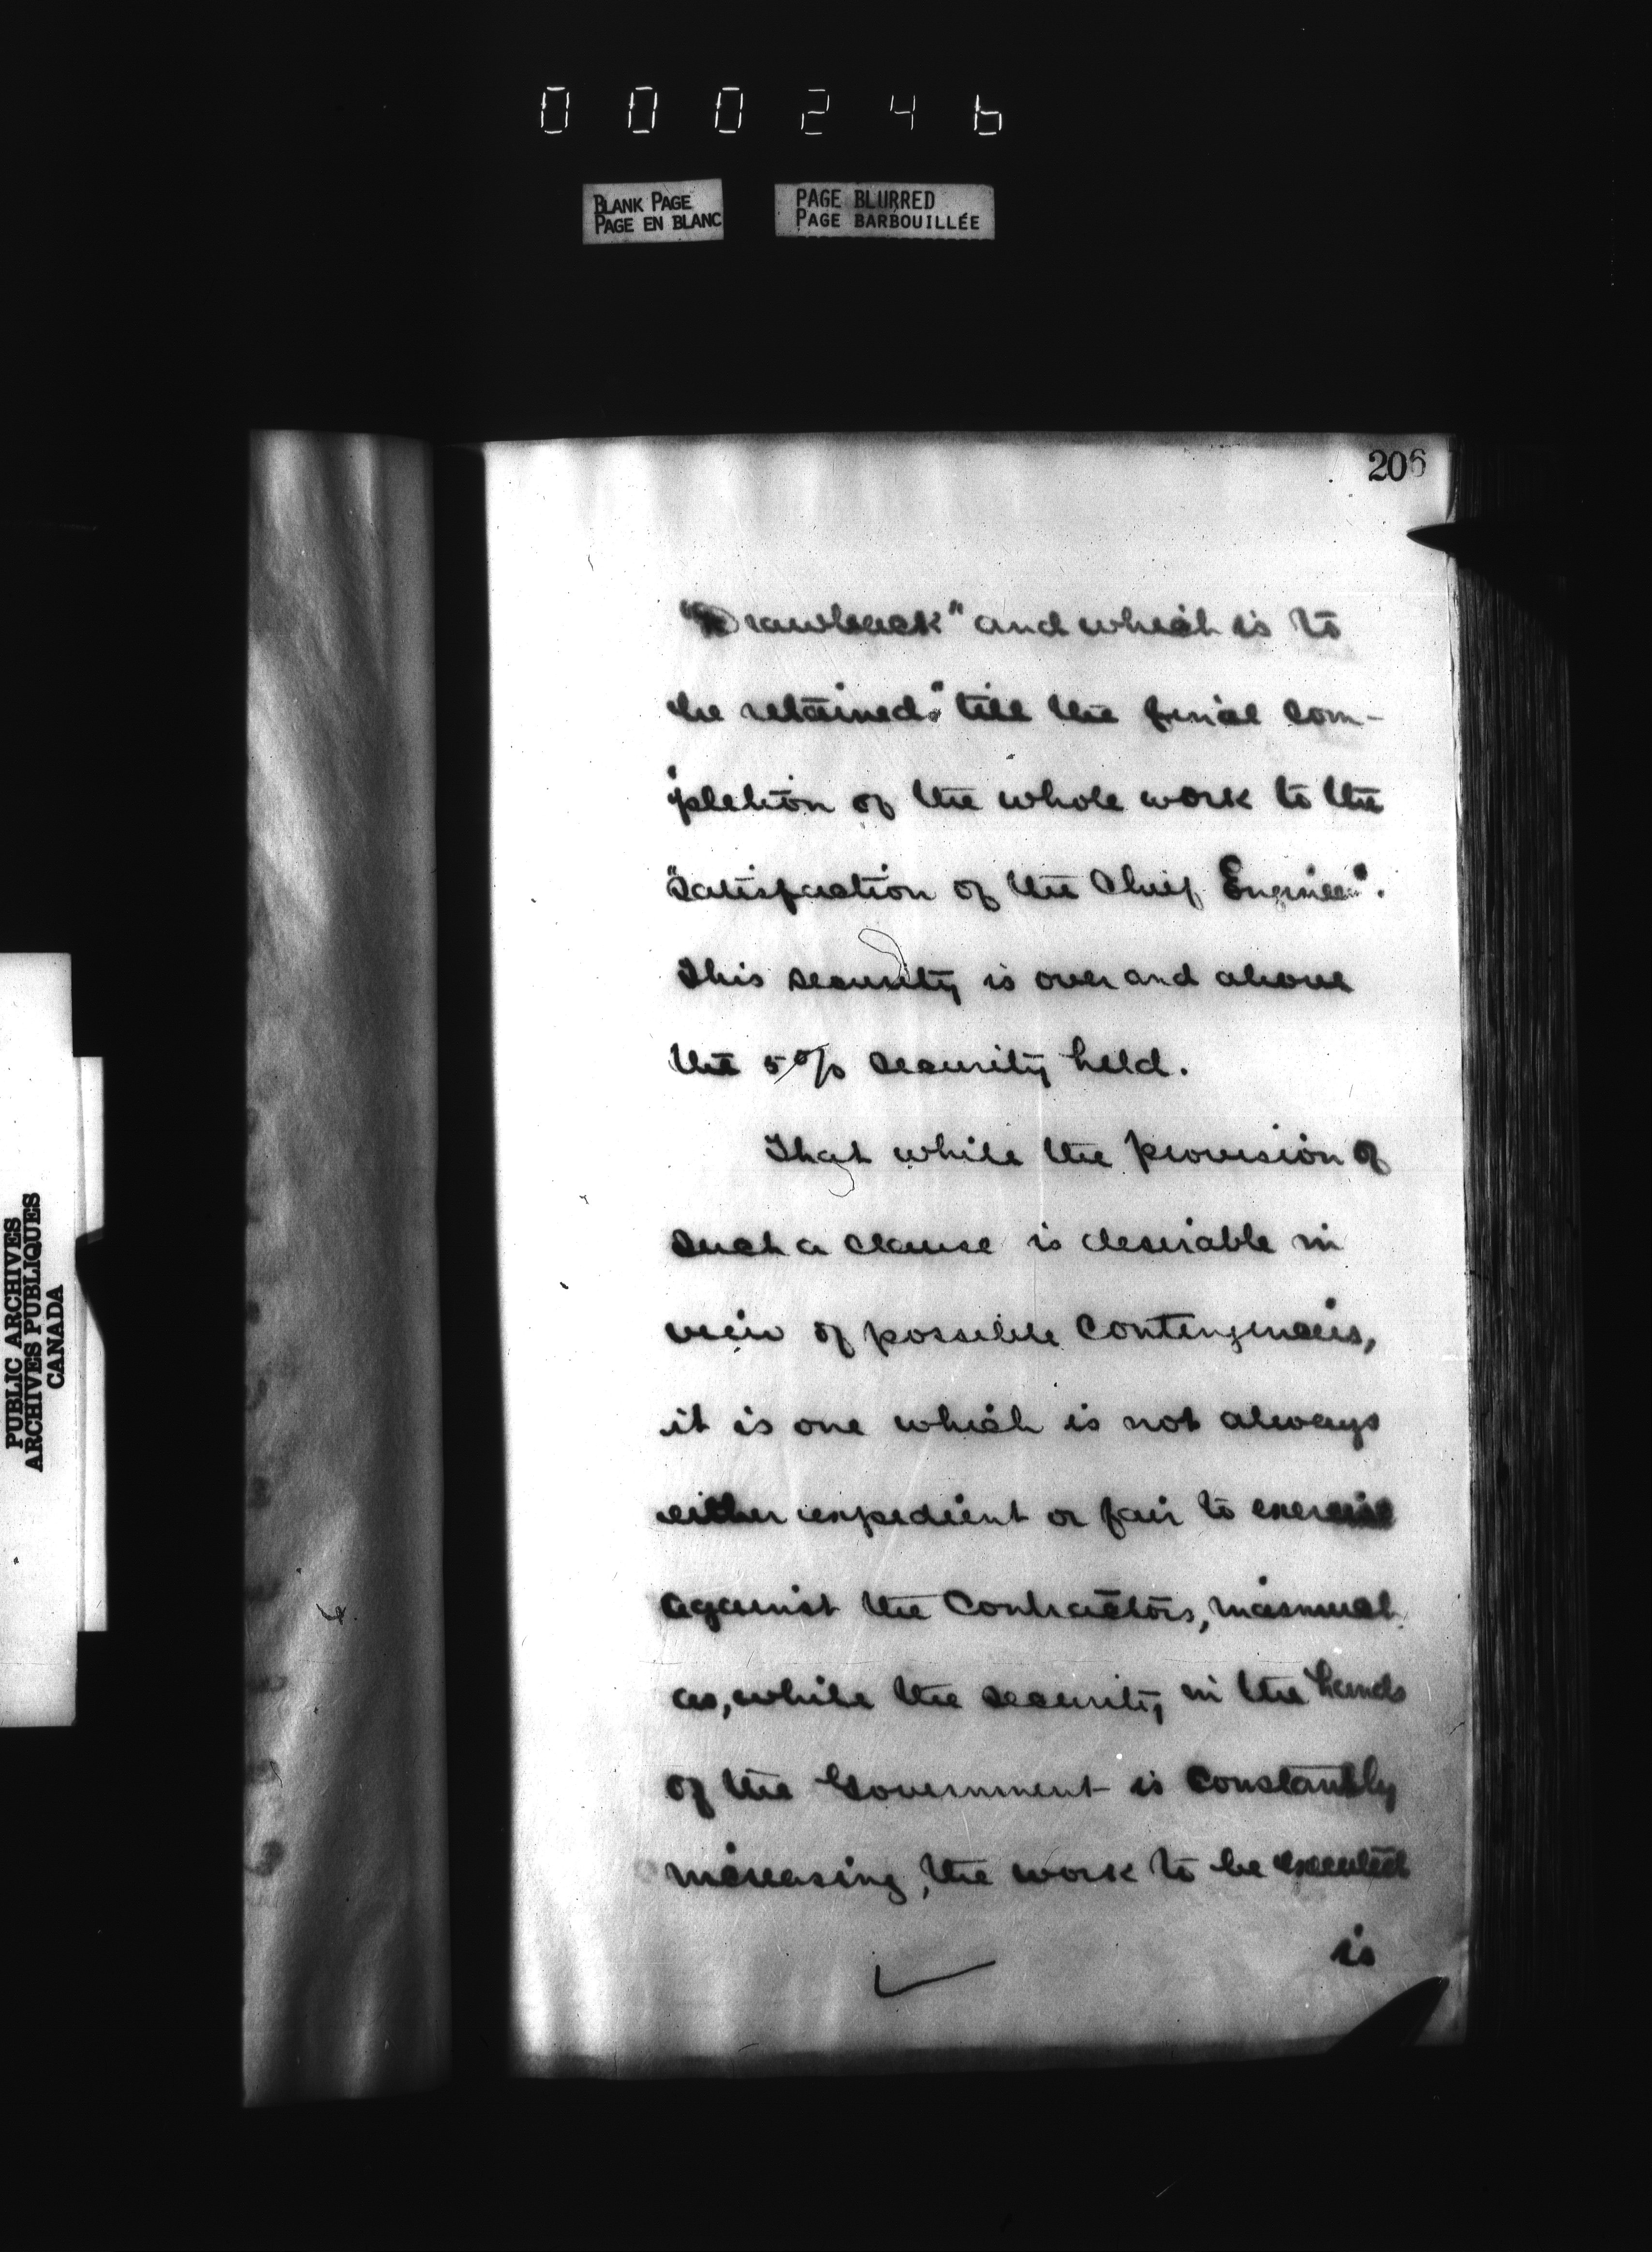 000246
BLANK PAGE
PAGE EN BLANC
PAGE BLURRED
PAGE BARBOUILLÉE
206
"Drawback" and which is to
be retained "till the final com-
"pletion of the whole work to the
"satisfaction of the Chief Engineer".
This security is over and above
the 5% security held.
That while the provision of
such a clause is desirable in
view of possible contingencies,
it is one which is not always
either expedient or fair to exercise
against the Contractors, inasmuch
as, while the security in the hands
of the Government is constantly
increasing, the work to be executed
is
PUBLIC ARCHIVES
ARCHIVES PUBLIQUES
CANADA